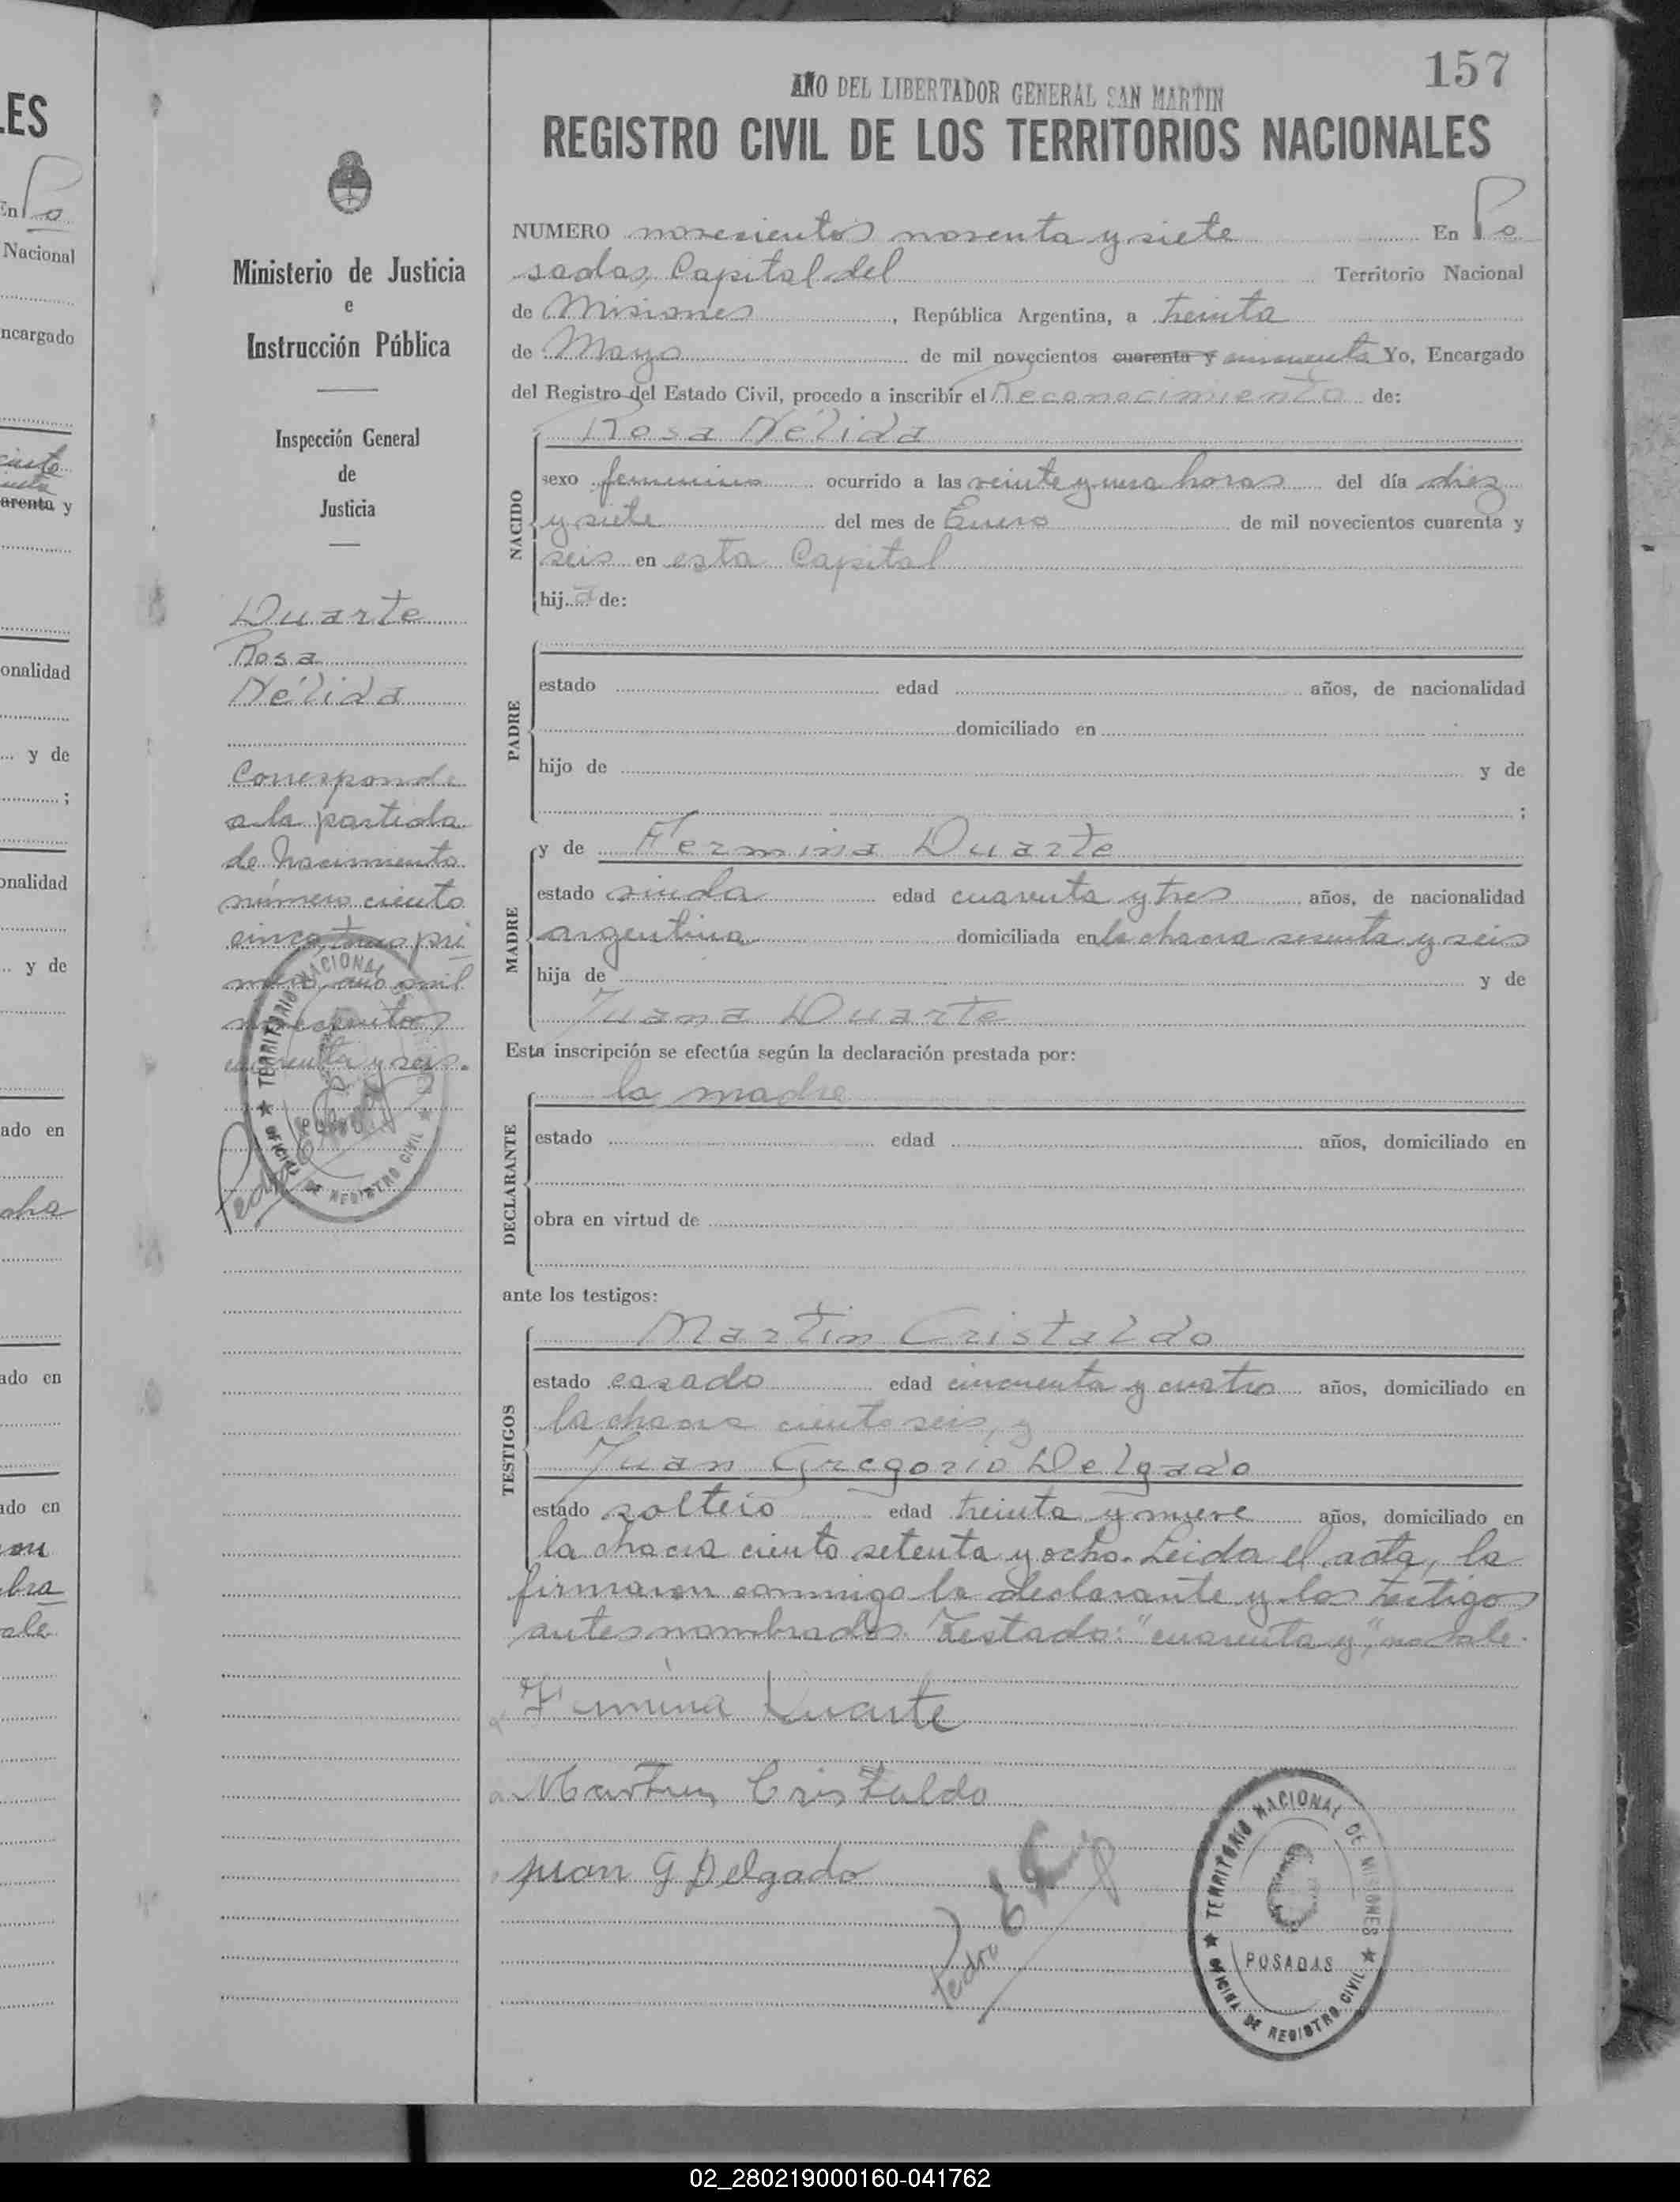 157
AÑO DEL LIBERTADOR GENERAL SAN MARTIN
REGISTRO CIVIL DE LOS TERRITORIOS NACIONALES
NUMERO novecientos noventa y siete En Po
sadas, Capital del Territorio Nacional
de Misiones, República Argentina, a treinta
de Mayo de mil novecientos cuarenta y cincuenta Yo, Encargado
del Registro del Estado Civil, procedo a inscribir el Reconocimiento de:
NACIDO
Rosa Nélida
sexo femenino ocurrido a las veinte y una horas del día diez
y siete del mes de Enero de mil novecientos cuarenta y
seis en esta Capital
hija de:
PADRE
estado edad años, de nacionalidad
domiciliado en
hijo de y de
;
MADRE
y de Fermina Duarte
estado edad cuarenta y tres años, de nacionalidad
argentina domiciliada en la chacra sesenta y seis
hija de y de
Juana Duarte
Esta inscripción se efectúa según la declaración prestada por:
DECLARANTE
la madre
estado edad años, domiciliado en
obra en virtud de
ante los testigos:
TESTIGOS
Martín Cristaldo
estado casado edad cincuenta y cuatro años, domiciliado en
la chacra ciento seis, y
Juan Gregorio Delgado
estado soltero edad treinta y nueve años, domiciliado en
la chacra ciento setenta y ocho. Leida el acta, la
firmaron conmigo la declarante y los testigos
antes nombrados. Testado: "cuarenta y", no vale.
Fermina Duarte
Martin Cristaldo
Juan G Delgado
Pedro
TERRITORIO NACIONAL DE MISIONES
POSADAS
OFICINA DE REGISTRO CIVIL
Ministerio de Justicia
e
Instrucción Pública
Inspección General
de
Justicia
Duarte
Rosa
Nélida
Corresponde
a la partida
de nacimiento
número ciento
cinco, tomo pri
mero, año mil
novecientos
cuarenta y seis.
TERRITORIO NACIONAL
OFICINA DE REGISTRO CIVIL
Pedro
LES
En Po
Nacional
ncargado
arenta y
onalidad
y de
;
onalidad
y de
ado en
ado en
ado en
02_280219000160-041762